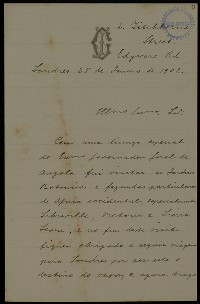 Street
Edgware Rd
Londres 25 de Junho de 1902.
Illmo Exmo Sr.
Com uma licença especial
do Exmo Governador Geral de
Angola fui visitar os Jardins
Botanicos e fazendas particulares
de Africa occidental, especialmente
Libreville, Victoria e Serra
Leone, e no fim desta visita
fiquei obrigado a seguir viagem
para Londres por ser este o
destino do vapor, e agora